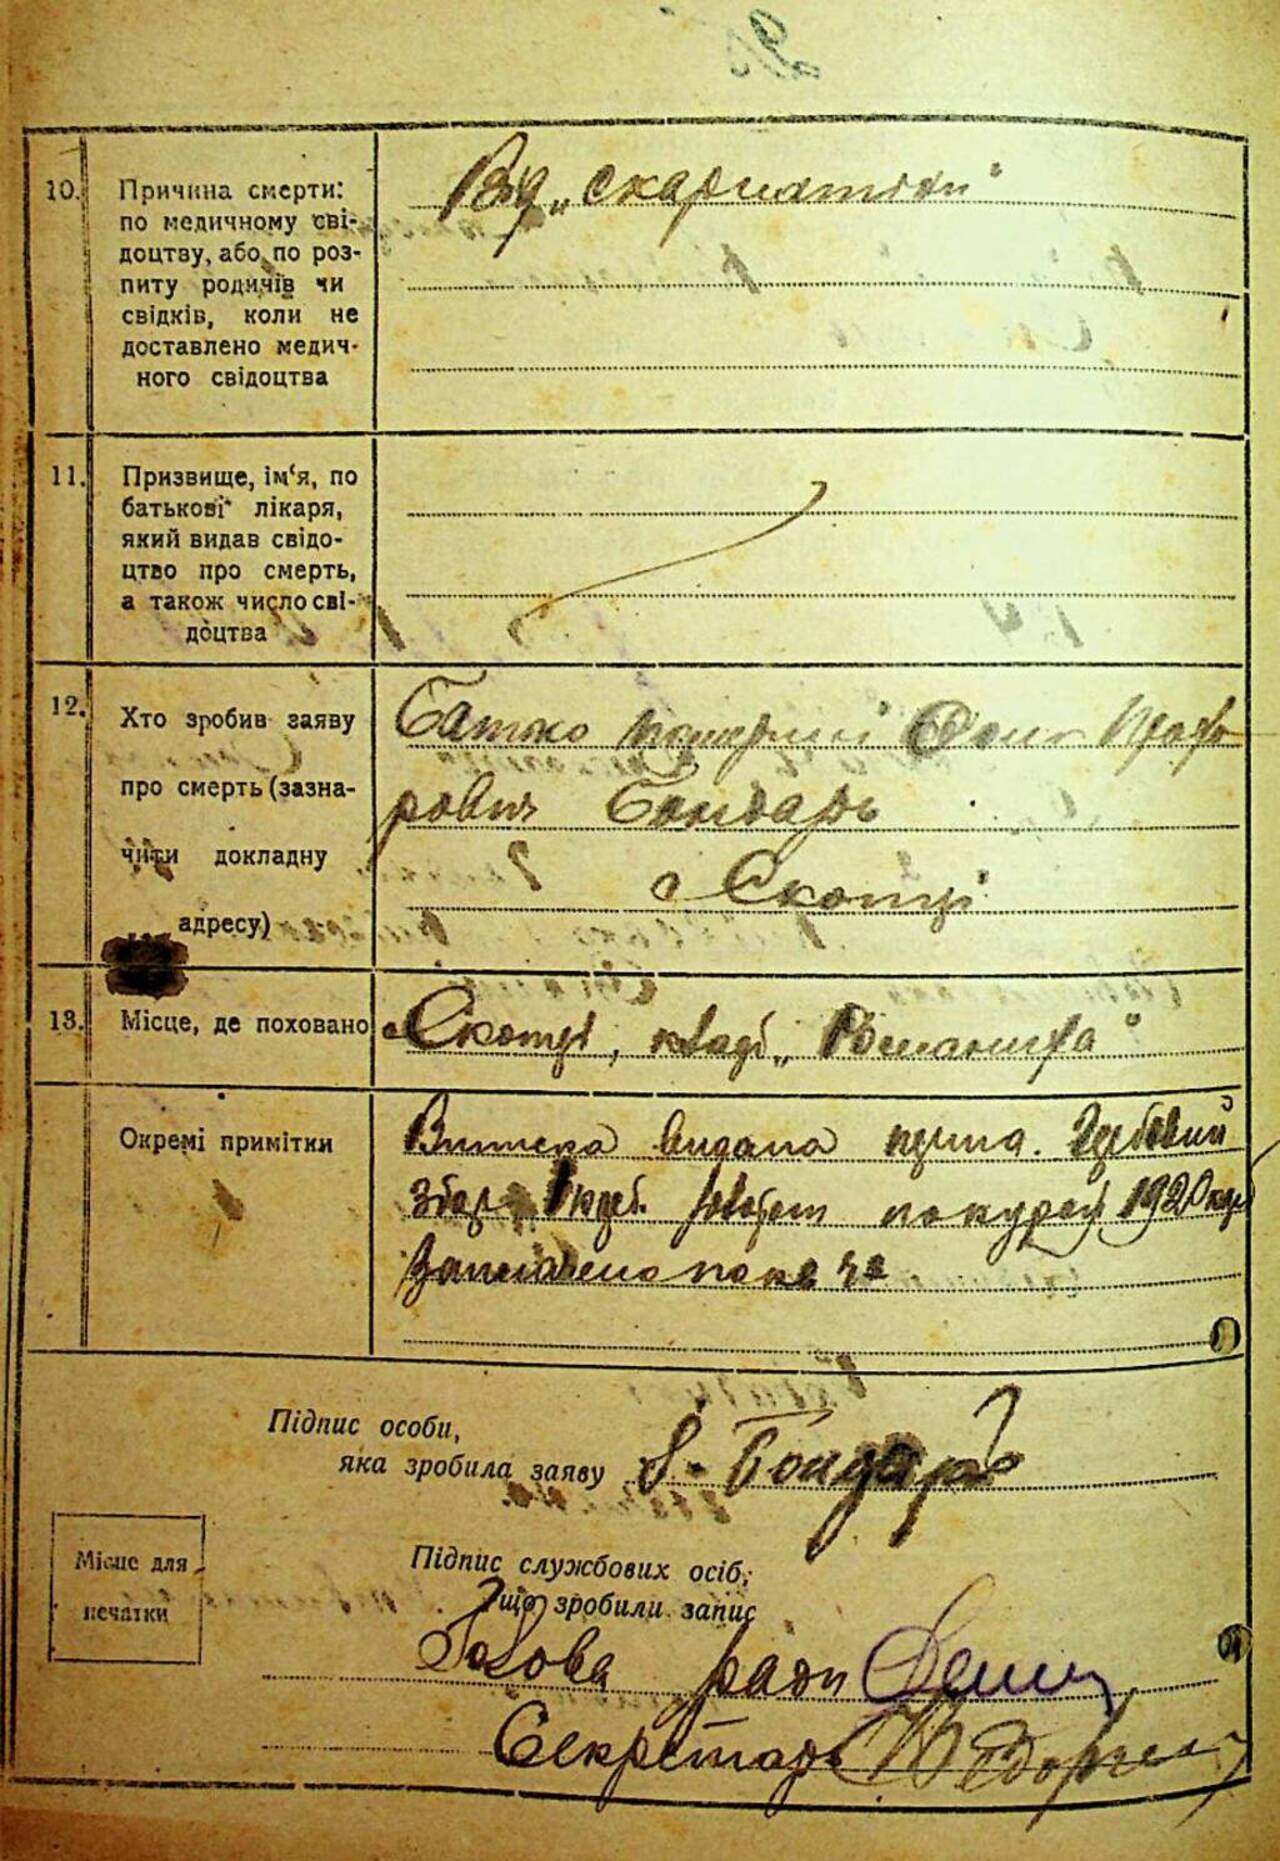 10.
Причина смерти:
по медичному сві-
доцтву, або по роз-
питу родичів чи
свідків, коли не
доставлено медич-
ного свідоцтва
Від „скарлятини"
11.
Призвище, ім'я, по
батькові лікаря,
який видав свідо-
цтво про смерть,
а також число сві-
доцтва
12.
Хто зробив заяву
про смерть (зазна-
чити докладну
адресу)
Батько
рович Бондарь
с Скотці
13.
Місце, де поховано
с Скотці, кладб „Романиха"
Окремі примітки
Виписка видана
1920
Підпис особи,
яка зробила заяву
Бондарь
Місце для
печатки
Підпис службових осіб,
що зробили запис
Голова ради
Секретарь